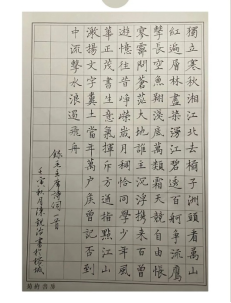 獨立寒秋湘江北去橘子洲頭看萬山
紅遍層林盡染漫江碧透百舸爭流鷹
擊長空魚翔淺底萬類霜天競自由悵
寥廓問蒼茫大地誰主沉浮攜來百曾
遊憶往昔崢嶸歲月稠恰同學少年風
華正茂書生意氣揮斥方遒指點江山
激揚文字糞土當年萬戶侯曾記否到
中流擊水浪遏飛舟
錄毛主席詩詞一首
壬寅秋月陳治書於榕城